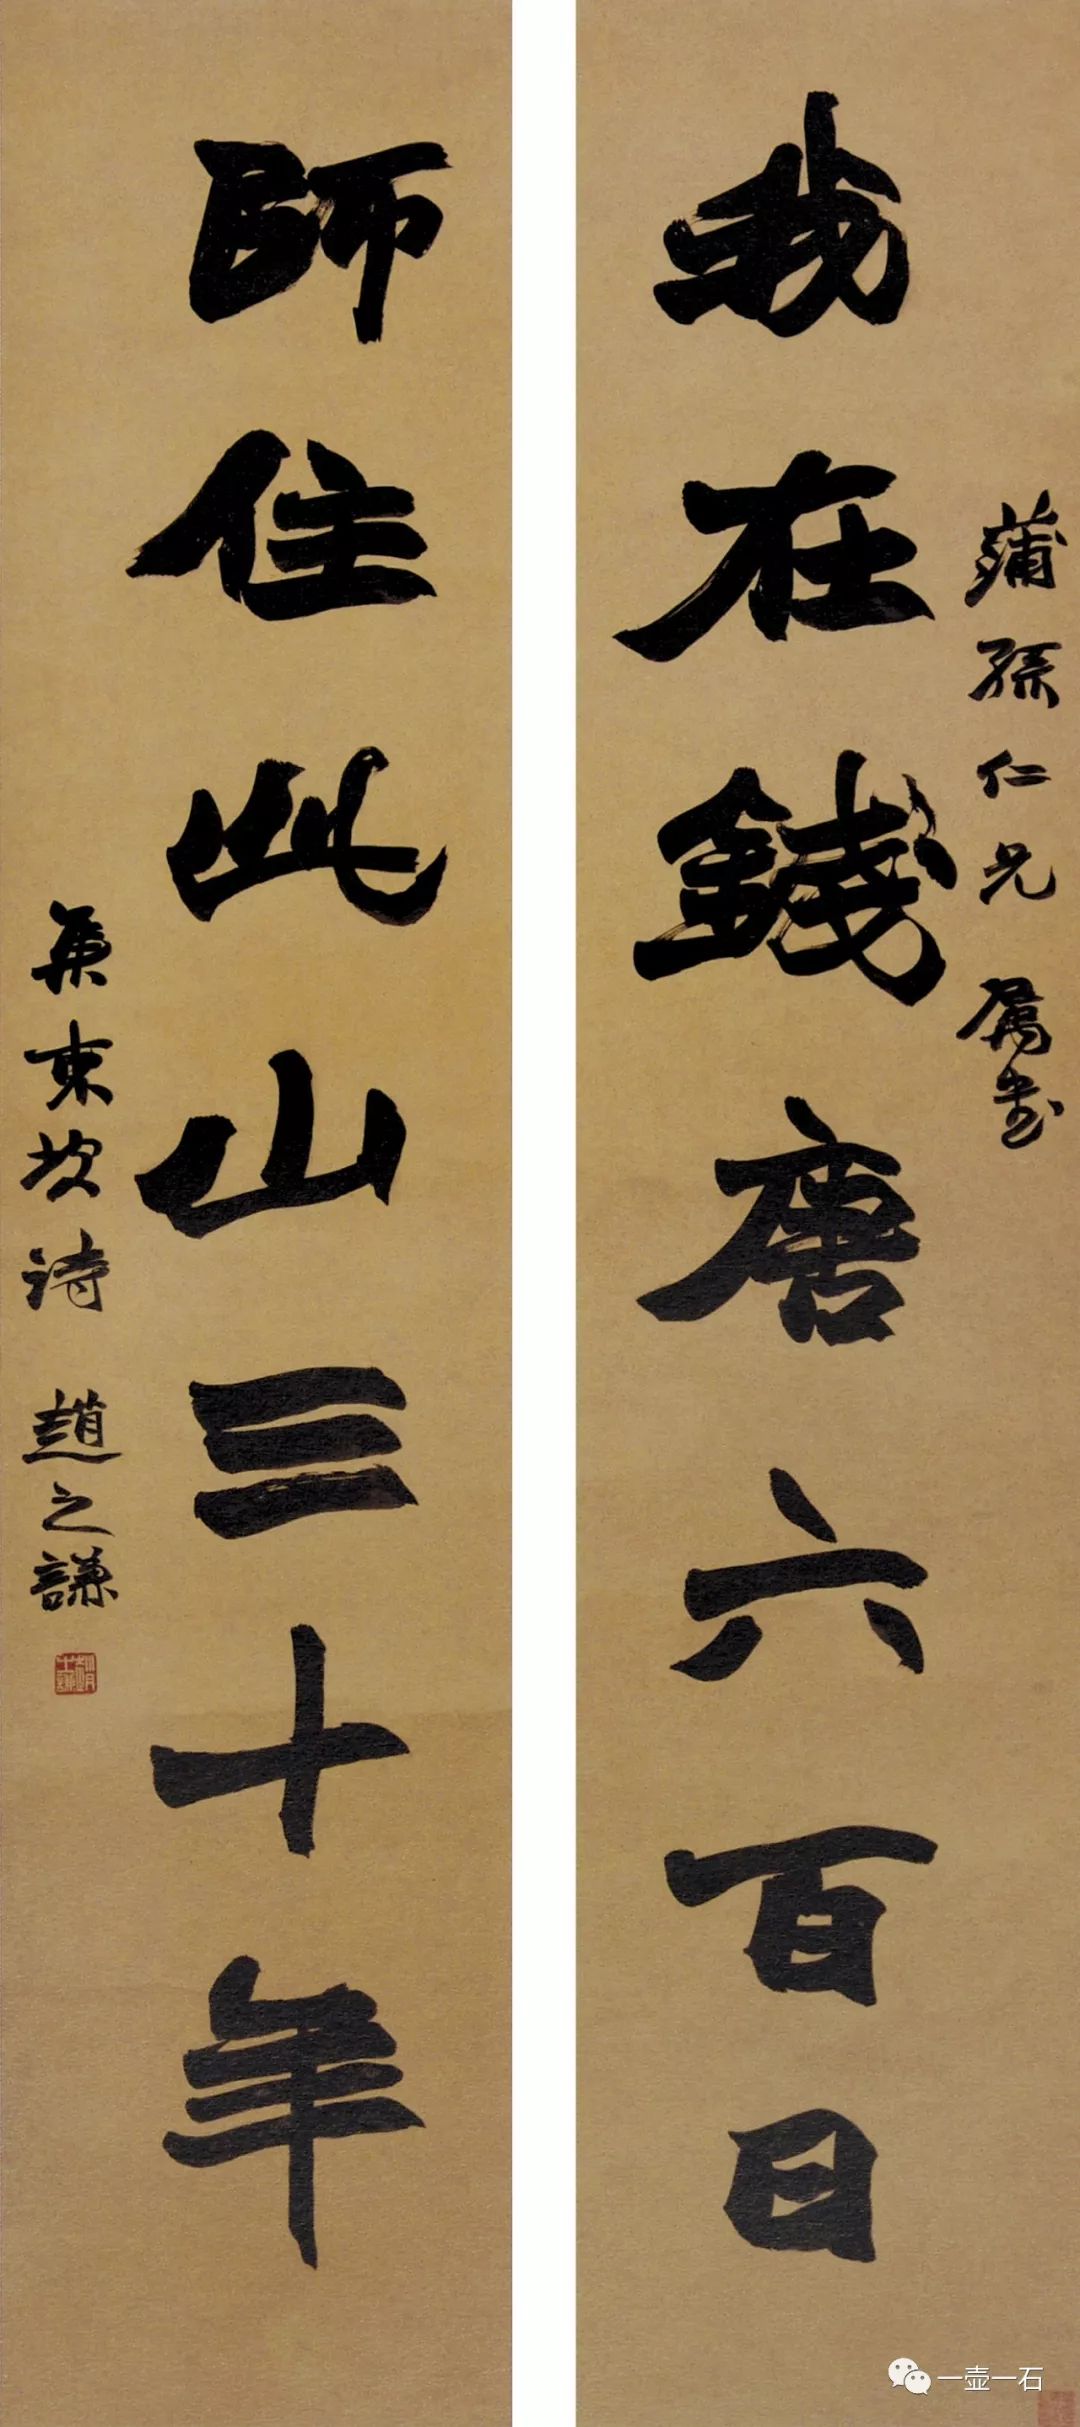 蒲孫仁兄屬書
我在錢唐六百日
師住此山三十年
集東坡詩 趙之謙
一壶一石